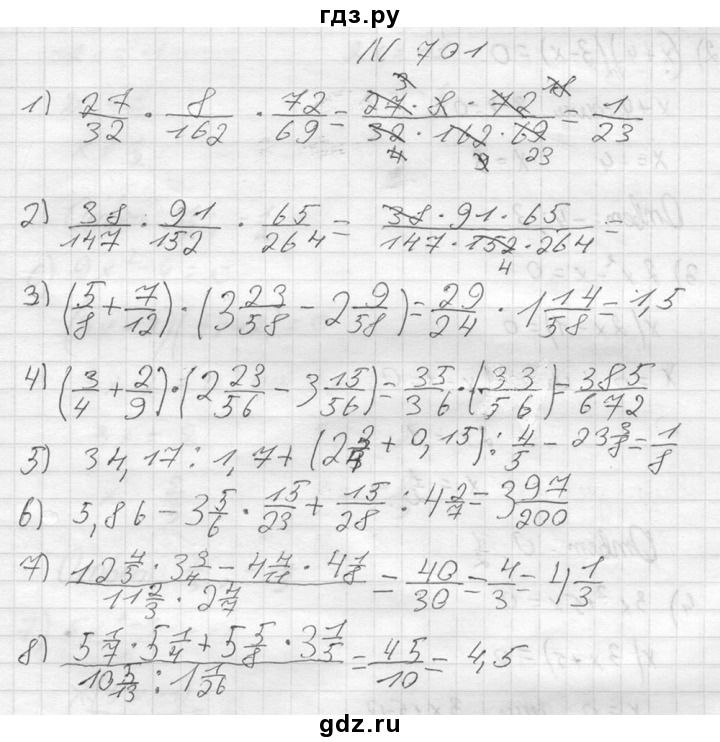 гдз.ру
№ 701
1) 27/32 · 8/162 · 72/69 = 27 · 8 · 72 / 32 · 162 · 69 = 1/23
3 18 4 9 23
2) 38/147 · 91/152 · 65/264 = 38 · 91 · 65 / 147 · 152 · 264 =
4
3) (5/8 + 7/12) · (3 23/58 - 2 9/58) = 29/24 · 1 14/58 = 1,5
4) (3/4 + 2/9) · (2 23/56 - 3 15/56) = 35/36 · (33/56) = 385/672
5) 34,17 : 1,7 + (2 3/4 + 0,15) : 4/5 - 23 3/8 = 1/8
6) 5,86 - 3 5/6 · 15/23 + 15/28 : 4 2/7 = 3 97/200
7) 12 4/5 · 3 3/4 - 4 4/11 · 4 1/8 / 11 2/3 · 2 4/7 = 40/30 = 4/3 = 4 1/3
8) 5 1/7 · 5 1/4 + 5 5/8 · 3 1/5 / 10 5/13 : 1 1/26 = 45/10 = 4,5
gdz.ru